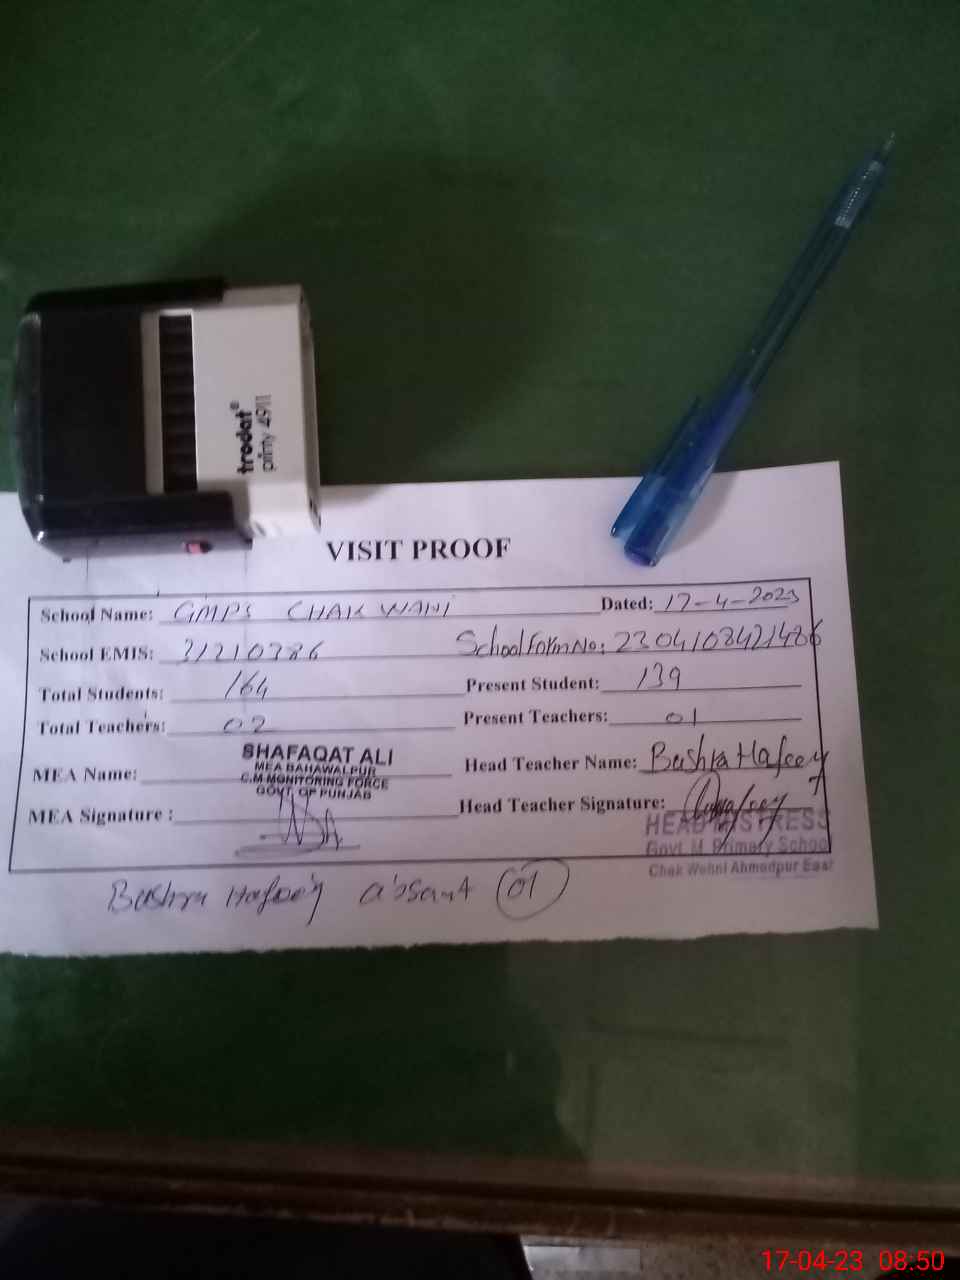 trodat®
printy 4911
VISIT PROOF
School Name: GMPS CHAK WANI Dated: 17-4-2023
School EMIS: 31210386 School Form No: 2304108421486
Total Students: 164 Present Student: 139
Total Teachers: 02 Present Teachers: 01
SHAFAQAT ALI
MEA BAHAWALPUR
C.M MONITORING FORCE
GOVT. OF PUNJAB
MEA Name: Head Teacher Name: Bushra Hafeez
MEA Signature : Head Teacher Signature:
HEADMISTRESS
Govt. M. Primary School
Chak Wehni Ahmedpur East
Bushra Hafeez absant 01
17-04-23 08:50